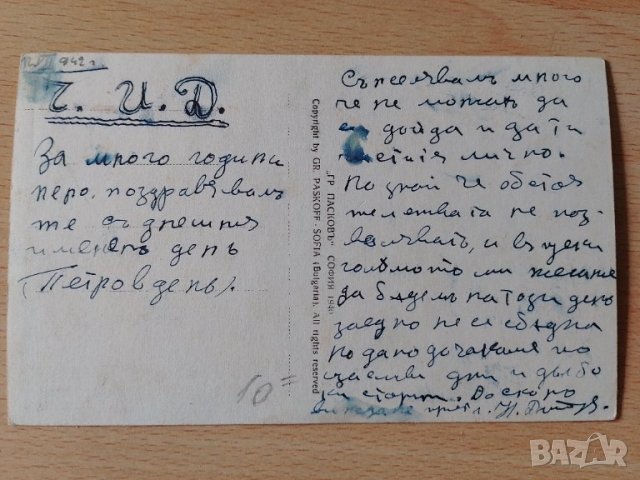 942 г.
Ч. И. Д.
За много години
перо. поздравявамъ
те съ днешния
именъ день
(Петровдень).
Copyright by GR. PASKOFF - SOFIA (Bulgaria). All rights reserved
„ГР ПАСКОВЪ" СОФИЯ 1940
10
Съжелявамъ много
че не можахъ да
дойда и да ти
честитя лично.
Но знай че обстоя
телствата не поз
воляватъ, и въпреки
голѣмото ми желание
да бѫдемъ на този день
заедно не се сбѫдна
Но да подочакаме по
щасливи дни и дълбо
ки старини. До скоро
виждане
bazar.bg